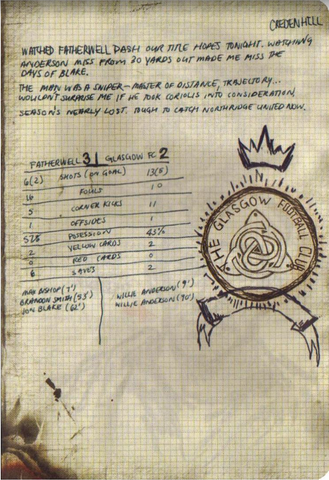 CREDENHILL
WATCHED FATHERWELL DASH OUR TITLE HOPES TONIGHT. WATCHING
ANDERSON MISS FROM 20 YARDS OUT MADE ME MISS THE
DAYS OF BLARE.
THE MAN WAS A SNIPER - MASTER OF DISTANCE, TRAJECTORY...
WOULDN'T SURPRISE ME IF HE TOOK CORIOLIS INTO CONSIDERATION.
SEASON'S NEARLY LOST. TOUGH TO CATCH NORTHRIDGE UNITED NOW.
FATHERWELL 3 | GLASGOW FC 2
6(2) SHOTS (ON GOAL) 13(8)
16 FOULS 10
5 CORNER KICKS 11
1 OFFSIDES 1
52% POSESSION 45%
2 YELLOW CARDS 2
0 RED CARDS 0
6 SAVES 2
MAX BISHOP (7')
BRANDON SMITH (53')
JON BLARE (62')
WILLIE ANDERSON (9')
WILLIE ANDERSON (90')
THE GLASGOW FOOTBALL CLUB